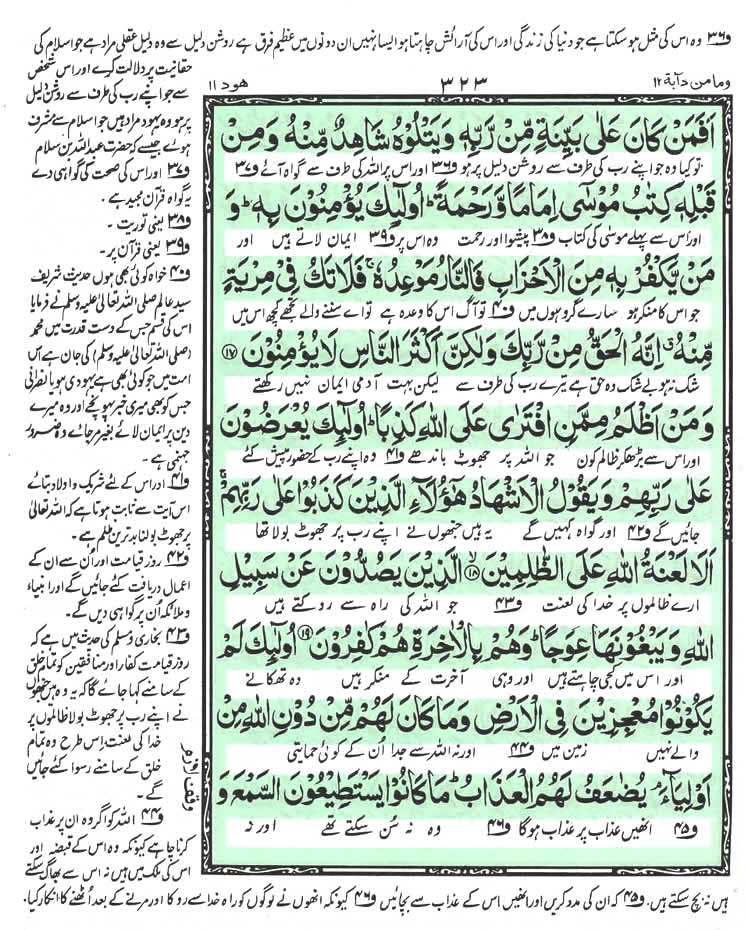 و۳۶ وہ اس کی مثل ہوسکتا ہے جو دنیا کی زندگی اور اس کی آرائش چاہتا ہو ایسا نہیں ان دونوں میں عظیم فرق ہے روشن دلیل سے وہ دلیل عقلی مراد ہے جو اسلام کی
وما من دآبة ۱۲
۳۲۳
ھود ۱۱
اَفَمَنْ كَانَ عَلٰى بَيِّنَةٍ مِّنْ رَّبِّهٖ وَيَتْلُوْهُ شَاهِدٌ مِّنْهُ وَمِنْ
تو کیا وہ جو اپنے رب کی طرف سے روشن دلیل پر ہو و۳۶ اور اس پر اللہ کی طرف سے گواہ آئے و۳۷
قَبْلِهٖ كِتٰبُ مُوْسٰٓى اِمَامًا وَّرَحْمَةً ؕ اُولٰٓئِكَ يُؤْمِنُوْنَ بِهٖ ؕ وَ
اور اس سے پہلے موسٰی کی کتاب و۳۸ پیشوا اور رحمت وہ اس پر و۳۹ ایمان لاتے ہیں اور
مَنْ يَّكْفُرْ بِهٖ مِنَ الْاَحْزَابِ فَالنَّارُ مَوْعِدُهٗ ۚ فَلَا تَكُ فِيْ مِرْيَةٍ
جو اس کا منکر ہو سارے گروہوں میں و۴۰ تو آگ اس کا وعدہ ہے تو اے سننے والے تجھے کچھ اس میں
مِّنْهُ ٗ اِنَّهُ الْحَقُّ مِنْ رَّبِّكَ وَلٰكِنَّ اَكْثَرَ النَّاسِ لَا يُؤْمِنُوْنَ ۱۷
شک نہ ہو بے شک وہ حق ہے تیرے رب کی طرف سے لیکن بہت آدمی ایمان نہیں رکھتے
وَمَنْ اَظْلَمُ مِمَّنِ افْتَرٰى عَلَى اللّٰهِ كَذِبًا ؕ اُولٰٓئِكَ يُعْرَضُوْنَ
اور اس سے بڑھ کر ظالم کون جو اللہ پر جھوٹ باندھے و۴۱ وہ اپنے رب کے حضور پیش کئے
عَلٰى رَبِّهِمْ وَيَقُوْلُ الْاَشْهَادُ هٰٓؤُلَآءِ الَّذِيْنَ كَذَبُوْا عَلٰى رَبِّهِمْ ۚ
جائیں گے و۴۲ اور گواہ کہیں گے یہ ہیں جنھوں نے اپنے رب پر جھوٹ بولا تھا
اَلَا لَعْنَةُ اللّٰهِ عَلَى الظّٰلِمِيْنَ ۱۸ الَّذِيْنَ يَصُدُّوْنَ عَنْ سَبِيْلِ
ارے ظالموں پر خدا کی لعنت و۴۳ جو اللہ کی راہ سے روکتے ہیں
اللّٰهِ وَيَبْغُوْنَهَا عِوَجًا ؕ وَهُمْ بِالْاٰخِرَةِ هُمْ كٰفِرُوْنَ ۱۹ اُولٰٓئِكَ لَمْ
اور اس میں کجی چاہتے ہیں اور وہی آخرت کے منکر ہیں وہ تھکانے
يَكُوْنُوْا مُعْجِزِيْنَ فِي الْاَرْضِ وَمَا كَانَ لَهُمْ مِّنْ دُوْنِ اللّٰهِ مِنْ
والے نہیں زمین میں و۴۴ اور نہ اللہ سے جدا اُن کے کوئی حمایتی
اَوْلِيَآءَ ۘ يُضٰعَفُ لَهُمُ الْعَذَابُ ؕ مَا كَانُوْا يَسْتَطِيْعُوْنَ السَّمْعَ وَ
و۴۵ انھیں عذاب پر عذاب ہوگا و۴۶ وہ نہ سُن سکتے تھے اور نہ
حقانیت پر دلالت کرے اور اس شخص
سے جو اپنے رب کی طرف سے روشن دلیل
پر ہو وہ یہود مراد ہیں جو اسلام سے مشرف
ہوئے جیسے کہ حضرت عبداللہ بن سلام
و۳۷ اور اس کی صحت کی گواہی دے
یہ گواہ قرآن مجید ہے ۔
و۳۸ یعنی توریت ۔
و۳۹ یعنی قرآن پر ۔
و۴۰ خواہ کوئی بھی ہوں حدیث شریف
سید عالم صلی اللہ تعالیٰ علیہ وسلم نے فرمایا
اس کی قسم جس کے دست قدرت میں محمد
(صلی اللہ تعالیٰ علیہ وسلم) کی جان ہے اس
امت میں جو کوئی بھی ہے یہودی ہو یا نصرانی
جس کو بھی میری خبر پہونچے اور وہ میرے
دین پر ایمان لائے بغیر مرجائے وہ ضرور
جہنمی ہے ۔
و۴۱ اور اس کے لئے شریک و اولاد بتائے
اس آیت سے ثابت ہوتا ہے کہ اللہ تعالیٰ
پر جھوٹ بولنا بدترین ظلم ہے ۔
و۴۲ روز قیامت اور اُن سے ان کے
اعمال دریافت کئے جائیں گے اور انبیاء
و ملائکہ اُن پر گواہی دیں گے ۔
و۴۳ بخاری و مسلم کی حدیث میں ہے کہ
روز قیامت کفار اور منافقین کو تمام خلق
کے سامنے کہا جائے گا کہ یہ وہ ہیں جنھوں
نے اپنے رب پر جھوٹ بولا ظالموں پر
خدا کی لعنت اس طرح وہ تمام
خلق کے سامنے رسوا کئے جائیں
گے ۔
وقف لازم
و۴۴ اللہ کو اگر وہ ان پر عذاب
کرنا چاہے کیونکہ وہ اس کے قبضہ اور
اس کی ملک میں ہیں نہ اس سے بھاگ سکتے
ہیں نہ بچ سکتے ہیں۔ و۴۵ کہ ان کی مدد کریں اور انھیں اس کے عذاب سے بچائیں و۴۶ کیونکہ انھوں نے لوگوں کو راہ خدا سے روکا اور مرنے کے بعد اُٹھنے کا انکار کیا۔